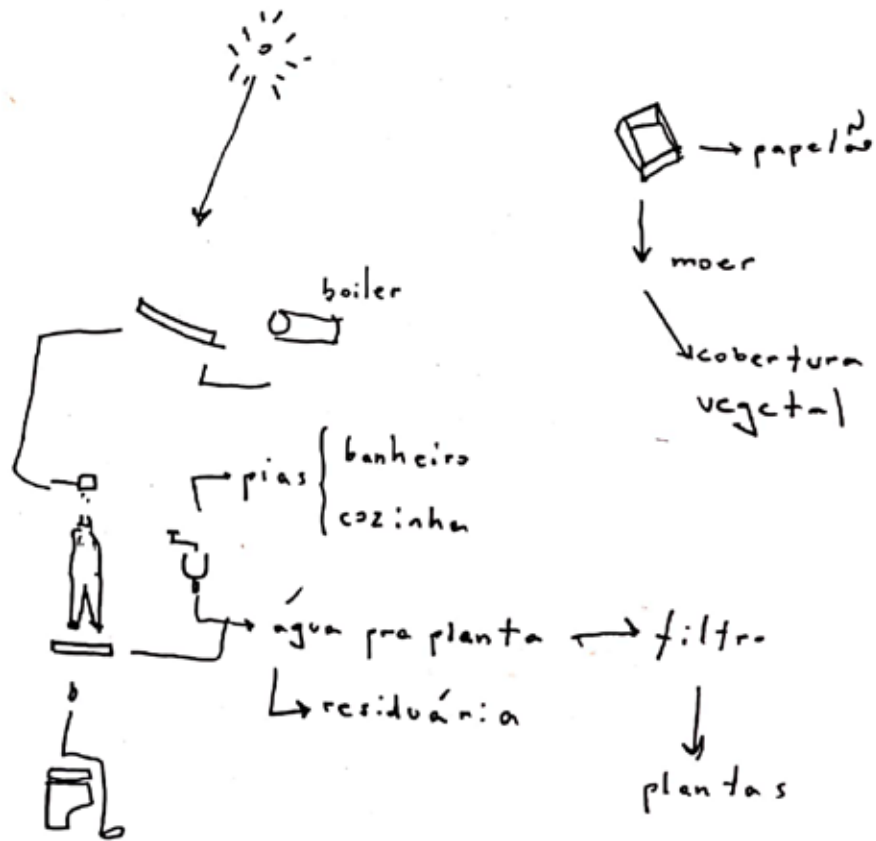 papelão
moer
cobertura
vegetal
boiler
pias
banheiro
cozinha
água pra planta
filtro
residuária
plantas